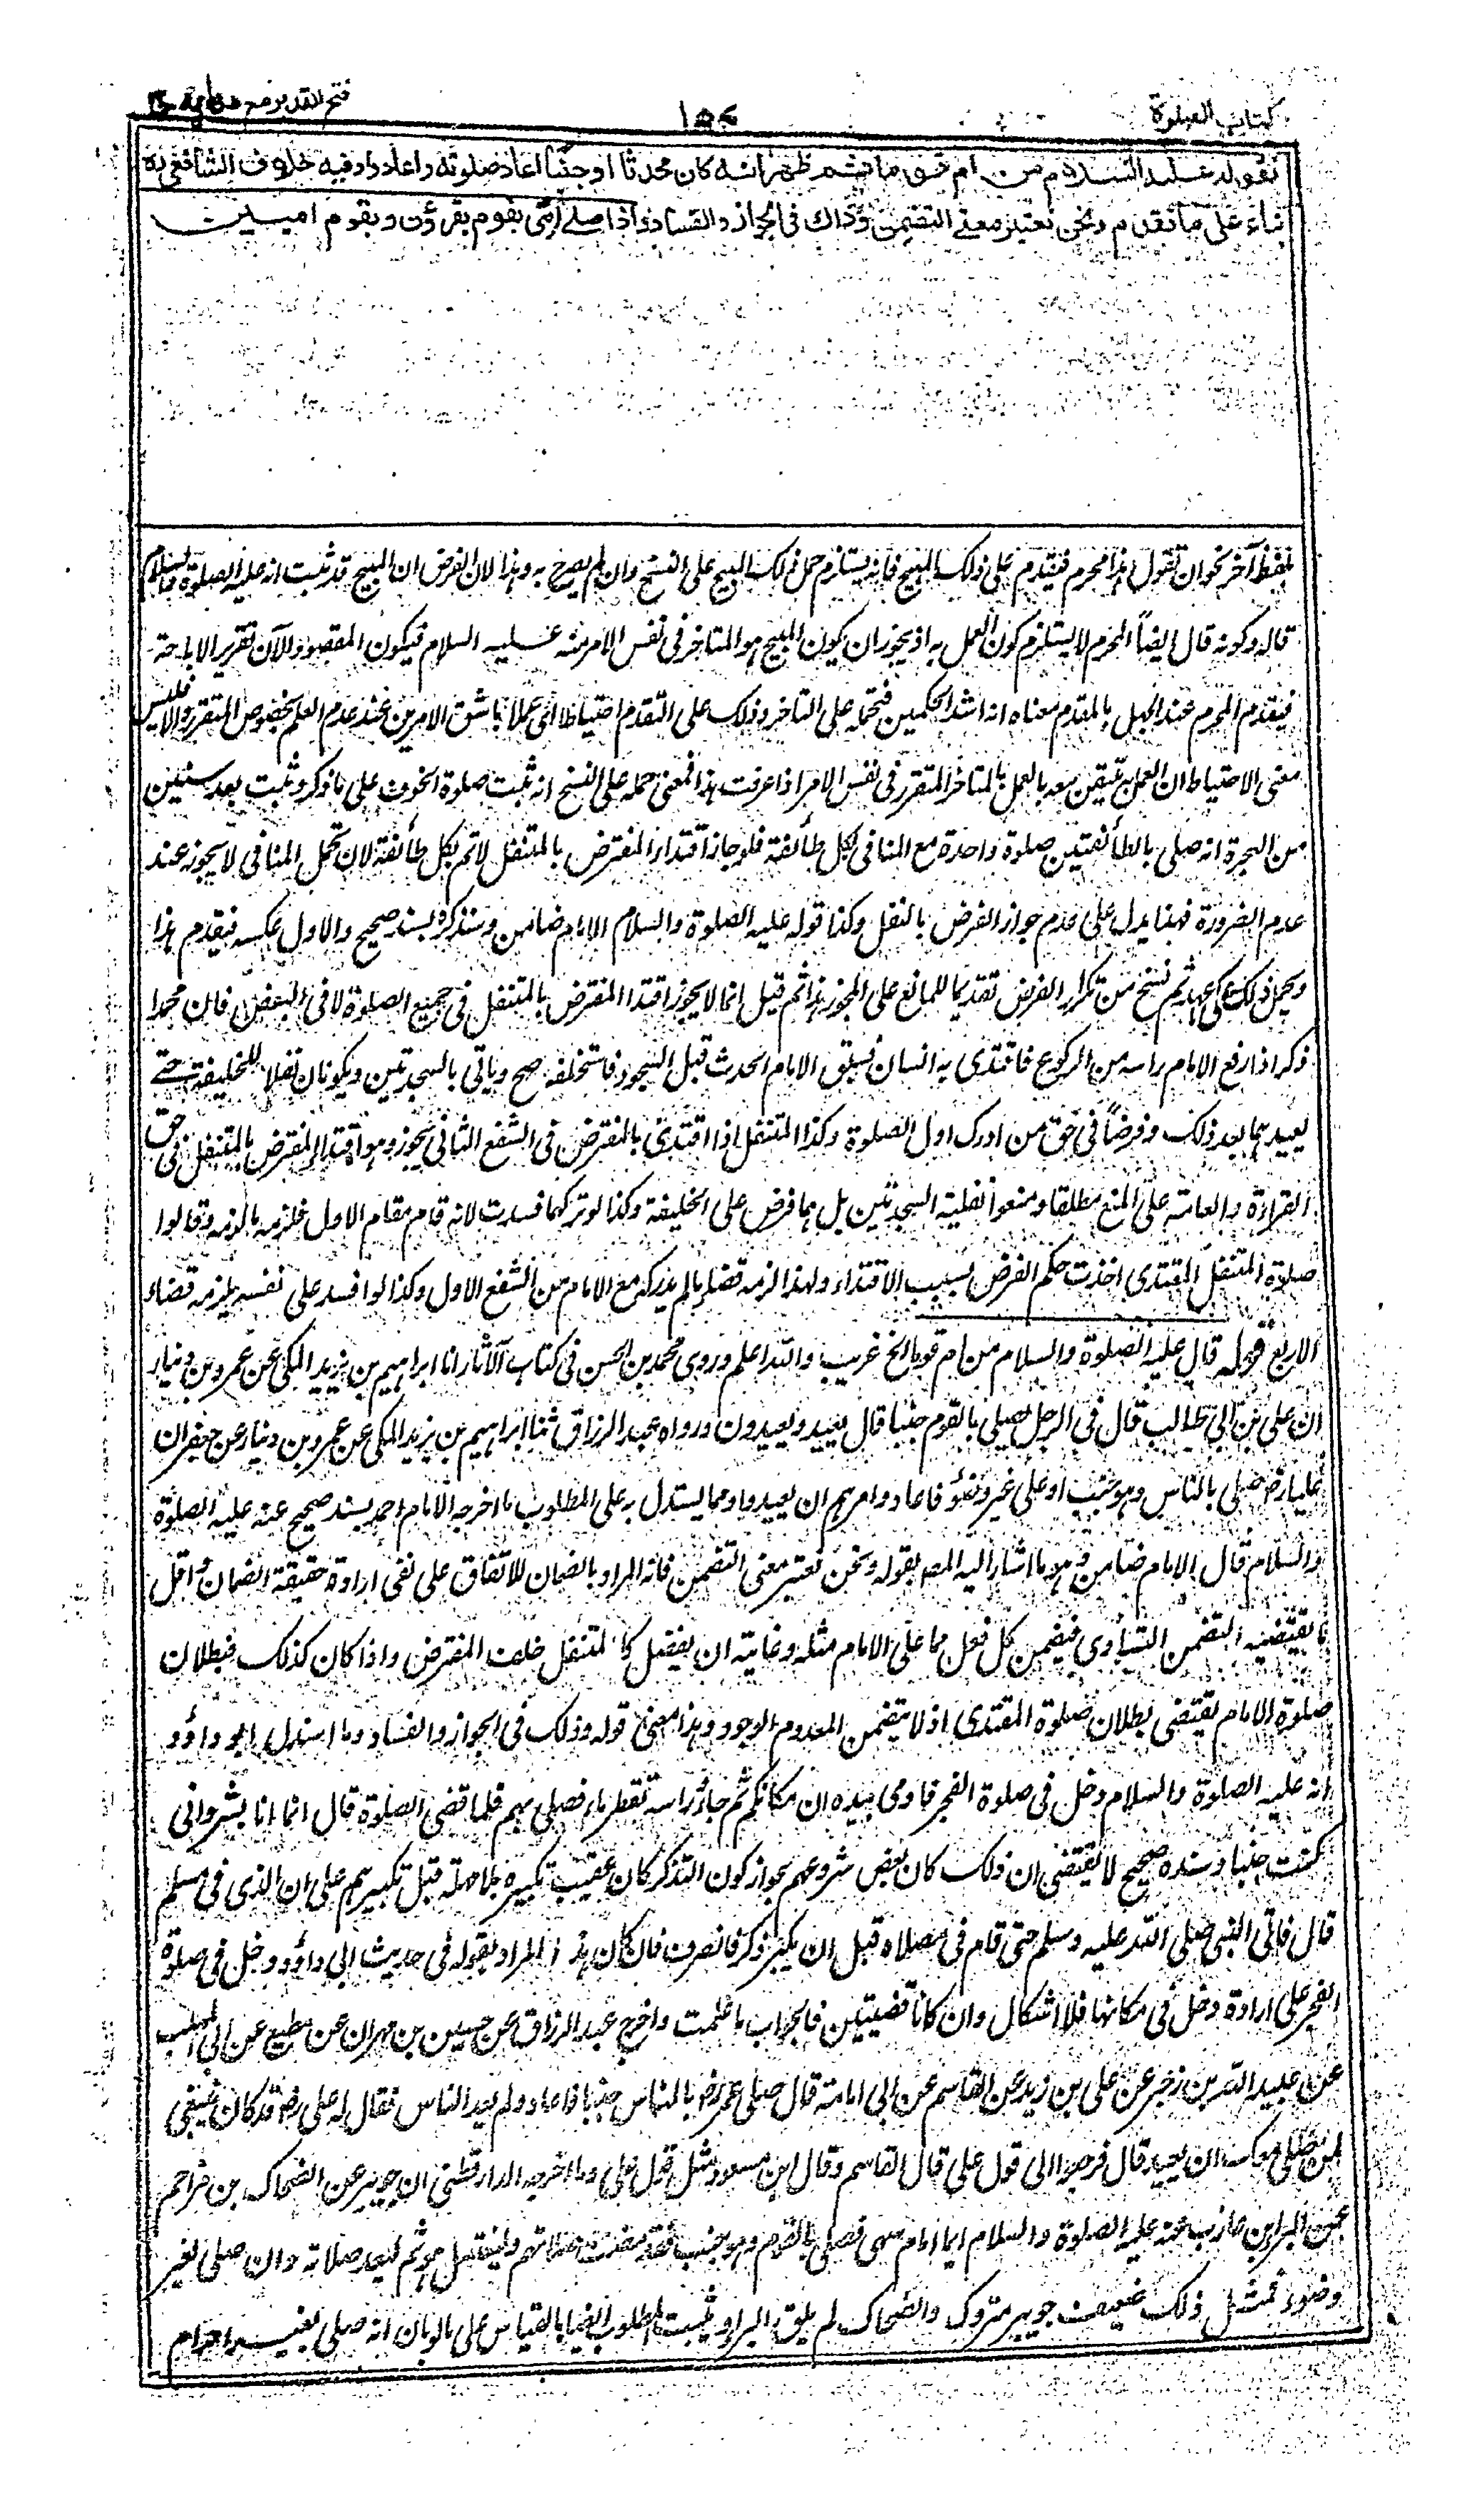 كتاب الصلوة
١٥٤
فتح القدير مع هداية ج
لقوله عليه السلام من ام قوما ثم ظهر انه كان محدثا او جنبا اعاد صلوته واعادوا وفيه خلاف الشافعي به
بناء على ما تقدم ونحن نعتبر معنى التضمن وذاك فى الجواز والفساد واذا صلے اُمِّى بقوم يقرؤن وبقوم اميين
بلفظ آخر نحو ان تقول هذا محرم فيقدم على ذلك المبيح فانه يستلزم حمل ذلك المبيح على النسخ وان لم يصرح به وهذا لان الفرض ان المبيح قد ثبت انه عليه الصلوة والسلام
قاله وكونه قال ايضاً المحرم لا يستلزم كون العمل به اذ يجوز ان يكون المبيح هو المتاخر فى نفس الامر منه عليه السلام فيكون المقصود الآن تقرير الاباحة
فيقدم المحرم عند الجهل بالمقدم معناه انه اشد الحكمين فتحمله على التاخر وذلك على التقدم احتياطا اى عملا باشق الامرين عند عدم العلم بخصوص المتقرر والا فليس
معنى الاحتياط ان العمل به يتيقن معه بالعمل بالمتاخر المتقرر فى نفس الامر اذا عرفت هذا فمعنى حمله على النسخ انه ثبت صلوة الخوف على ما ذكر وثبت بعد سنين
من الهجرة انه صلى بالطائفتين صلوة واحدة مع المنافى لكل طائفة فلو جاز اقتداء المفترض بالمتنفل لاتم بكل طائفة لان تحمل المنافى لا يجوز عند
عدم الضرورة فهذا يدل على عدم جواز الفرض بالنفل وكذا قوله عليه الصلوة والسلام الامام ضامن وسنذكره بسند صحيح والاول عكسه فيقدم هذا
ويحمل ذلك على عهد ثم نسخ من تكرار الفرض تقديما للمانع على المجوز هذا ثم قيل انما لا يجوز اقتداء المفترض بالمتنفل فى جميع الصلوة لا فى البعض فان محمدا
ذكر اذا رفع الامام راسه من الركوع فاقتدى به انسان فسبق الامام الحدث قبل السجود فاستخلفه صح وياتى بالسجدتين ويكونان نفلا للخليفة حتے
يعيدهما بعد ذلك وفرضاً فى حق من ادرك اول الصلوة وكذا المتنفل اذا اقتدى بالمفترض فى الشفع الثانى يجوز وهو اقتداء المفترض بالمتنفل فى حق
القراءة والعامة على المنع مطلقا ومنعوا نفلية السجدتين بل هما فرض على الخليفة وكذا لو تركهما فسدت لانه قام مقام الاول فلزمه ما لزمه وقالوا
صلوة المتنفل المقتدى اخذت حكم الفرض بسبب الاقتداء ولهذا لزمه قضاء ما لم يدركه مع الامام من الشفع الاول وكذا لو افسد على نفسه يلزمه قضاء
الاربع قوله قال عليه الصلوة والسلام من ام قوما الخ غريب والله اعلم وروى محمد بن الحسن فى كتاب الآثار انا ابراهيم بن يزيد المكى عن عمرو بن دينار
ان على بن ابى طالب قال فى الرجل يصلى بالقوم جنبا قال يعيد ويعيدون ورواه عبد الرزاق ثنا ابراهيم بن يزيد المكى عن عمرو بن دينار عن جعفر ان
عليا رض صلى بالناس وهو جنب او على غير وضوء فاعاد وامرهم ان يعيدوا ومما يستدل به على المطلوب ما اخرجه الامام احمد بسند صحيح عنه عليه الصلوة
والسلام قال الامام ضامن وهو ما اشار اليه المصـ بقوله ونحن نعتبر معنى التضمن فانه المراد بالضمان للاتفاق على نفى ارادة حقيقة الضمان واقل
ما يقتضيه التضمن التساوى فيضمن كل فعل مما على الامام مثله وغايته ان يفضل كالمتنفل خلف المفترض واذا كان كذلك فبطلان
صلوة الامام يقتضى بطلان صلوة المقتدى اذ لا يتضمن المعدوم الموجود وهذا معنى قوله وذلك فى الجواز والفساد وما اسند ابو داؤد
انه عليه الصلوة والسلام دخل فى صلوة الفجر فاومى بيده ان مكانكم ثم جاء وراسه تقطر ماء فصلى بهم فلما قضى الصلوة قال انما انا بشر وانى
كنت جنبا وسنده صحيح لا يقتضى ان ذلك كان بعض شروعهم بجواز كون التذكر كان عقيب تكبيره بلا مهلة قبل تكبيرهم على ان الذى فى مسلم
قال فاتى النبى صلى الله عليه وسلم حتى قام فى مصلاه قبل ان يكبر ذكر فانصرف فان كان هذا المراد بقوله فى حديث ابى داؤد دخل فى صلوة
الفجر على ارادة دخل فى مكانها فلا اشكال وان كانا قضيتين فالجواب ما علمت واخرج عبد الرزاق عن حسين بن مهران عن مطيع عن ابى المهلب
عن عبيد الله بن زحر عن على بن زيد عن القاسم عن ابى امامة قال صلى عمر رض بالناس جنبا فاعاد ولم يعد الناس فقال له على رض قد كان ينبغى
لمن صلى معك ان يعيد قال فرجعوا الى قول على قال القاسم وقال ابن مسعود مثل قول على وما اخرجه الدارقطنى ان جويبر عن الضحاك بن مزاحم
عن البراء بن عازب عنه عليه الصلوة والسلام ايما امام سهى فصلى بالقوم وهو جنب فقد مضت صلاتهم وليغتسل هو ثم ليعد صلاته وان صلى بغير
وضوء فمثل ذلك ضعيف جويبر متروك والضحاك لم يلق البراء ويثبت المطلوب ايضا بالقياس على ما لو بان انه صلى بغير احرام